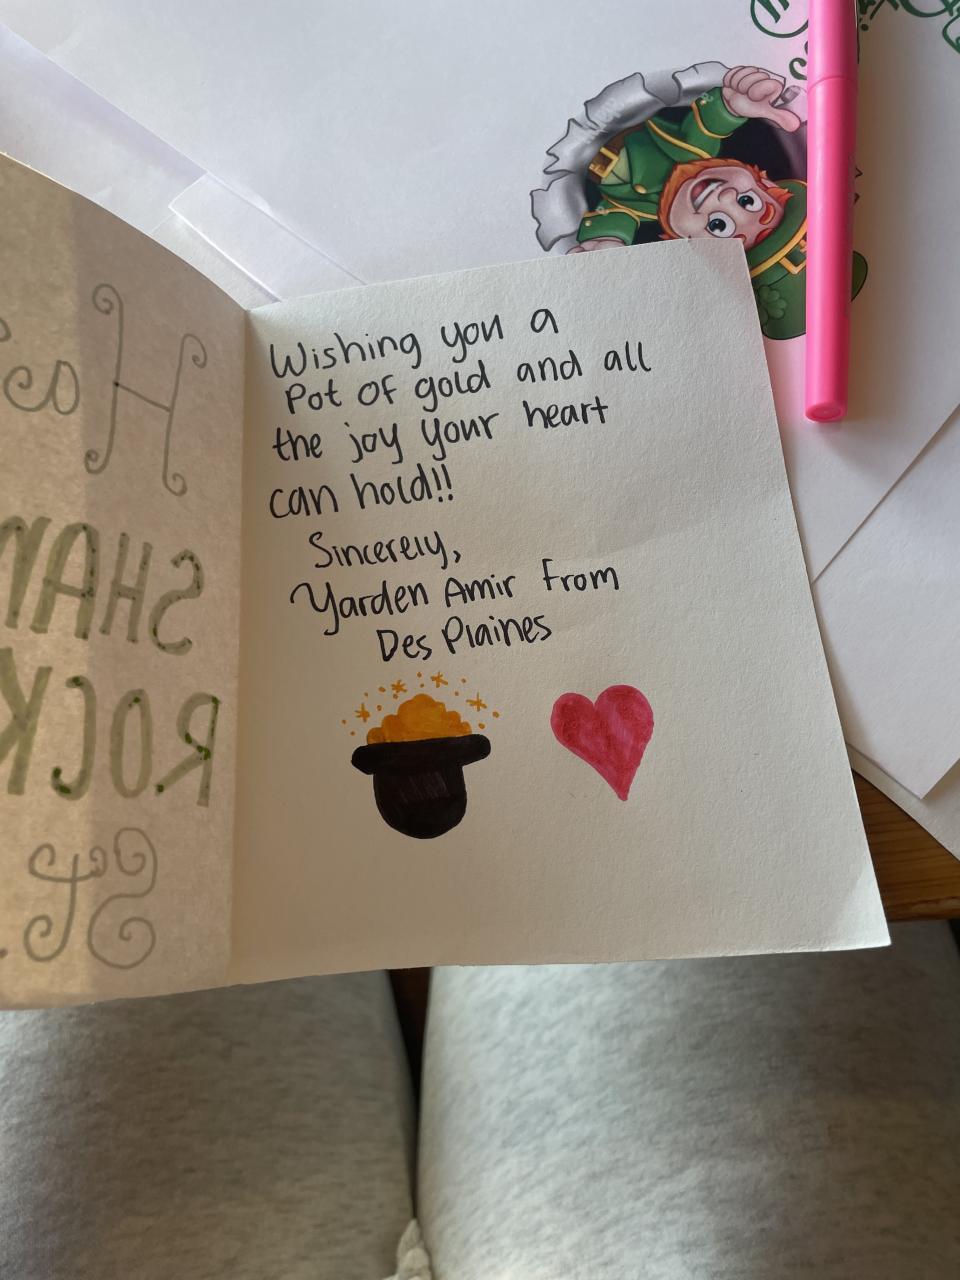 Wishing you a
Pot of gold and all
the joy your heart
can hold!!
Sincerely,
Yarden Amir From
Des Plaines
Ha
SHAM
ROCK